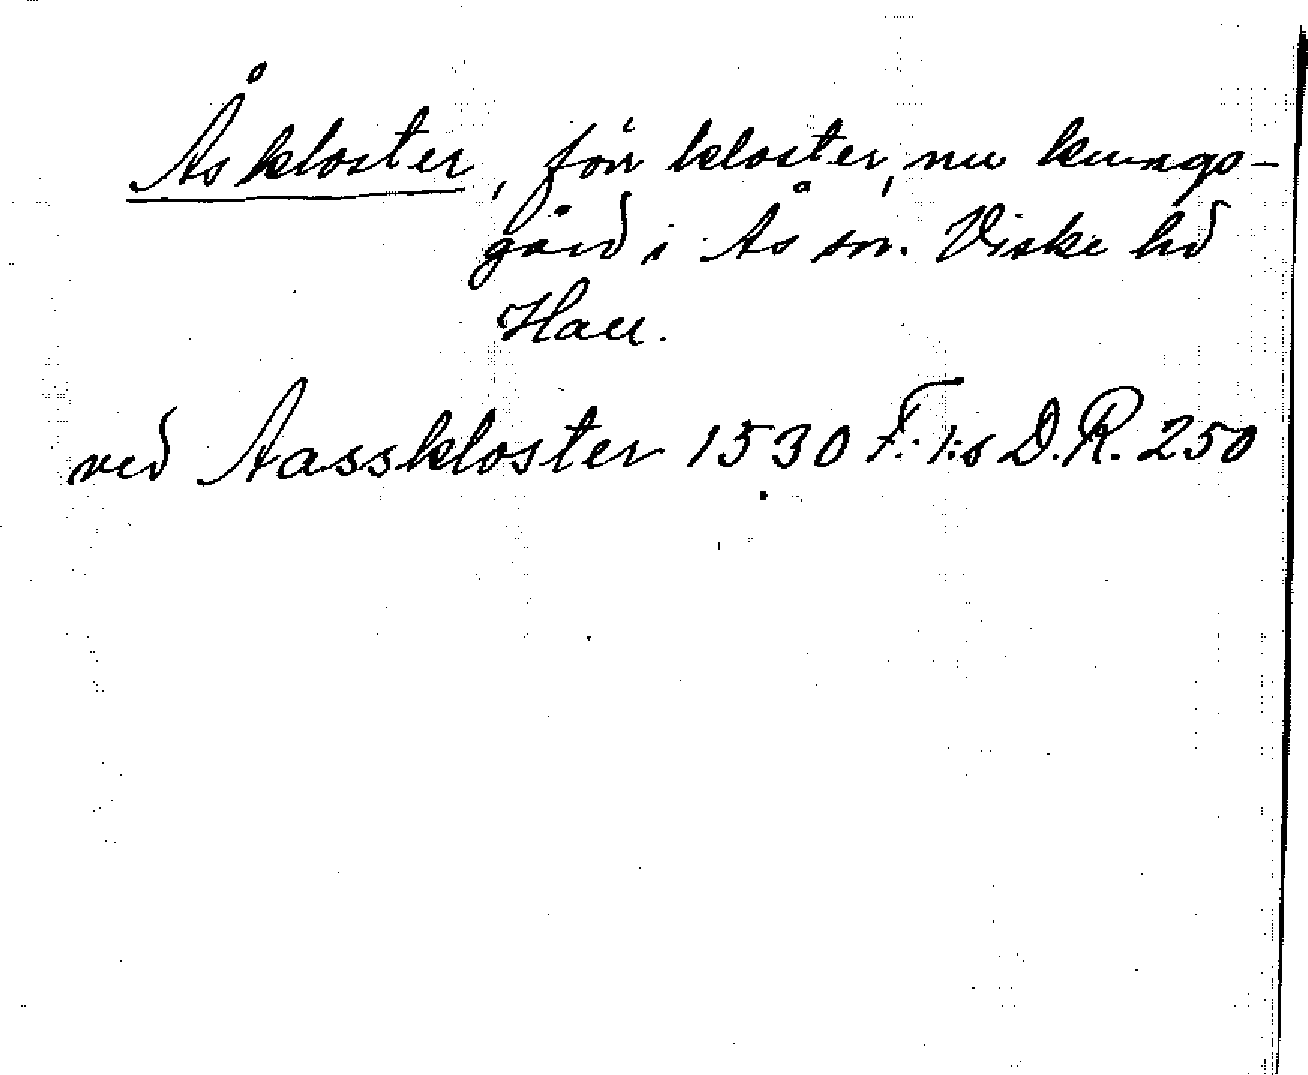 Åskloster, förr kloster, nu kungs-
gård i Ås sn. Viske hd
Hall.
ved Aasskloster 1530 F. 1:s D.R. 250